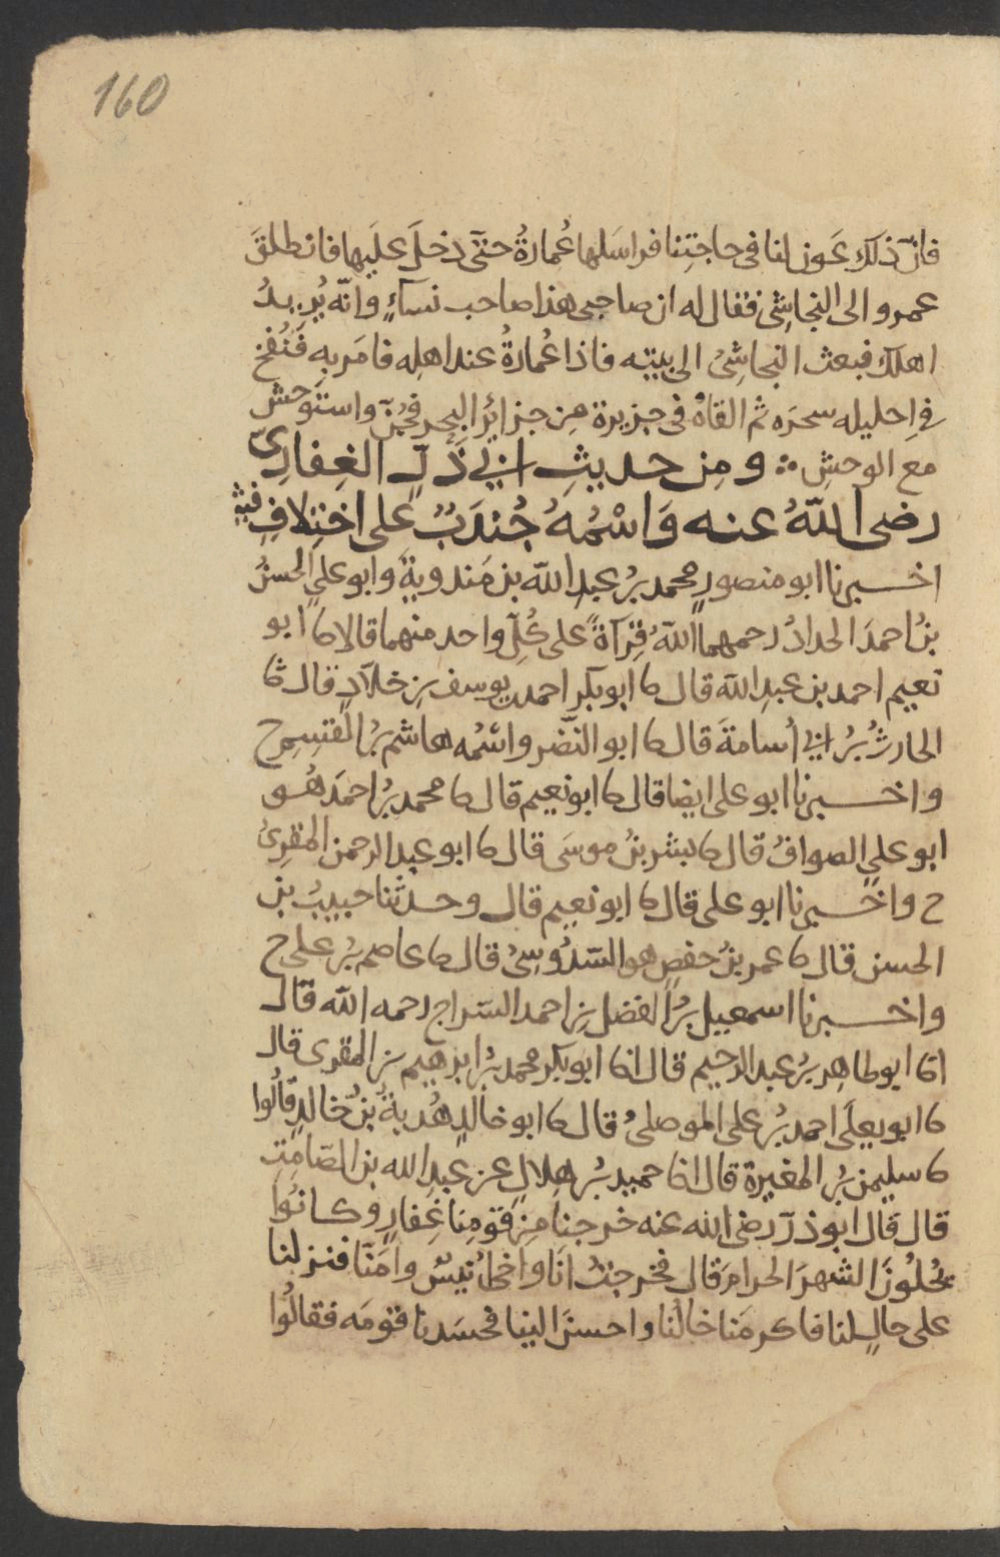 160
فانّ ذلك عَون لنا فى حاجتِنا فراسَلها عُمارةُ حتى دخلَ علَيها فانطلقَ
عمرو الى النجاشِى فقال له ان صاحبى هذا صاحب نسآءٍ وانّه يُريدُ
اهلك فبعث النجاشِىُ الى بيتِه فاذا عُمارةُ عند اهلِه فامَر بِه فنُفخ
فى اِحليله سحرَه ثم القاهُ فى جزيرة مِن جزائر البحر فجُنّ واستَوحش
مع الوحشِ ومِن حديثِ ابى ذَرّ الغِفارِىّ
رضى اللّهُ عنه وَاسْمُهُ جُندَبٌ على اختِلافٍ فيه
اخبرنا ابو منصورٍ محمد بنُ عبدِ اللّه بن مَندويةَ وابو علىٍ الحسنُ
بنُ احمدَ الحدادُ رحمهما اللّهُ قِرَآةً على كُلّ واحد منهما قالا ثا ابو
نعيم احمد بن عبدِ اللّه قال ثا ابو بكر احمد بن يوسف بنِ خلّادٍ قال ثا
الحارثُ بنُ ابى أسامةَ قال ثا ابو النّضر واسْمُه هاشم بنُ القسِمِ ح
واخبرنا ابو على ايضا قال ثا ابو نعيم قال ثا محمد بنُ احمدَ هُو
ابو علىٍ الصوافُ قال ثا بشر بنُ موسَى قال ثا ابو عبد الرحمن المقرِىُ
ح واخبرنا ابو على قال ثا ابو نعيم قال وحدثنا حبيبُ بن
الحسن قال ثا عمر بنُ حفصٍ هو السّدُوسِىُ قال ثا عاصم بنُ على ح
واخبرنا اسمعيل بنُ الفضل بنِ احمد السّراج رحمه اللّه قال
انا ابو طاهِر بنُ عبد الرحيم قال انا ابو بكر محمد بنُ ابرهيم بن المقرى قال
ثا ابو يعلَى احمد بنُ على الموصلىُ قال ثا ابو خالدٍ هُدبةُ بنُ خالدٍ قالُوا
ثا سليمن بنُ المغيرة قال انا حميد بنُ هلالٍ عن عبدِ الله بن الصّامِت
قال قال ابو ذرّ رضى الله عنه خرجنا مِن قومِنا غِفارٍ وكانُوا
يُحلُونَ الشهرَ الحرامَ قال فخرجتُ انَا واخى اُنيسٌ واُمّنا فنزلنا
على خالٍ لنا فاكرمَنا خالُنا واحسنَ الينا فحسَدنا قومُه فقالُوا